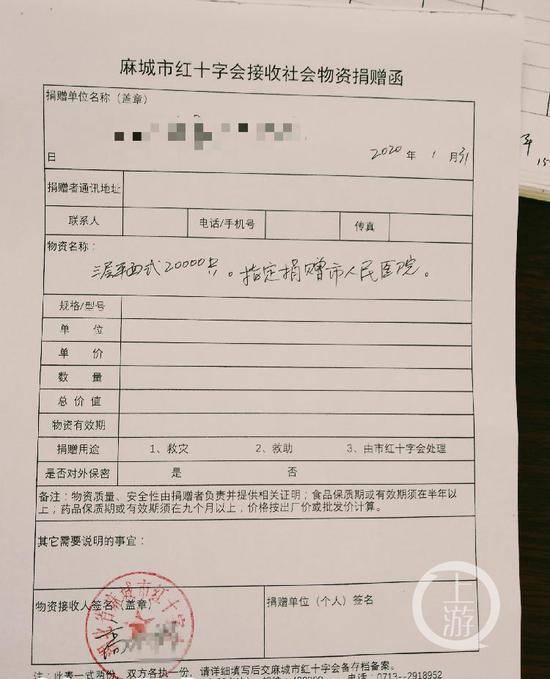 麻城市红十字会接收社会物资捐赠函
捐赠单位名称（盖章）
日 2020 年 1 月 31
捐赠者通讯地址
联系人 电话/手机号 传真
物资名称：
20000只。指定捐赠市人民医院。
规格/型号
单 位
单 价
数 量
总 价 值
物资有效期
捐赠用途 1、救灾 2、救助 3、由市红十字会处理
是否对外保密 是 否
备注：物资质量、安全性由捐赠者负责并提供相关证明；食品保质期或有效期须在半年以
上；药品保质期或有效期须在九个月以上，价格按出厂价或批发价计算。
其它需要说明的事宜：
物资接收人签名（盖章） 捐赠单位（个人）签名
麻城市红十字
上游
注：此表一式两份，双方各执一份，请详细填写后交麻城市红十字会备存档备案。
电话：0713-2918952